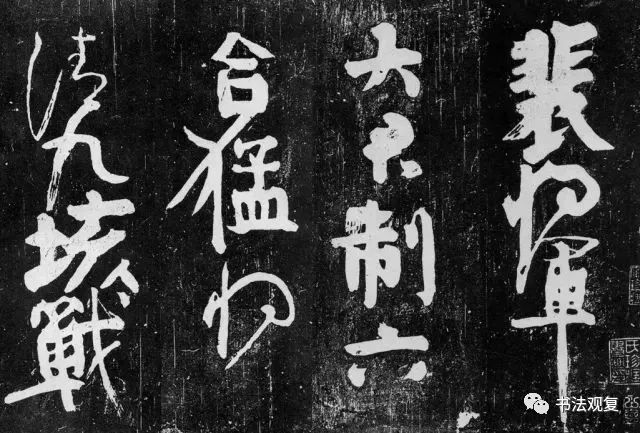 裴将軍
大君制六
合猛将
清九垓戰
书法观复